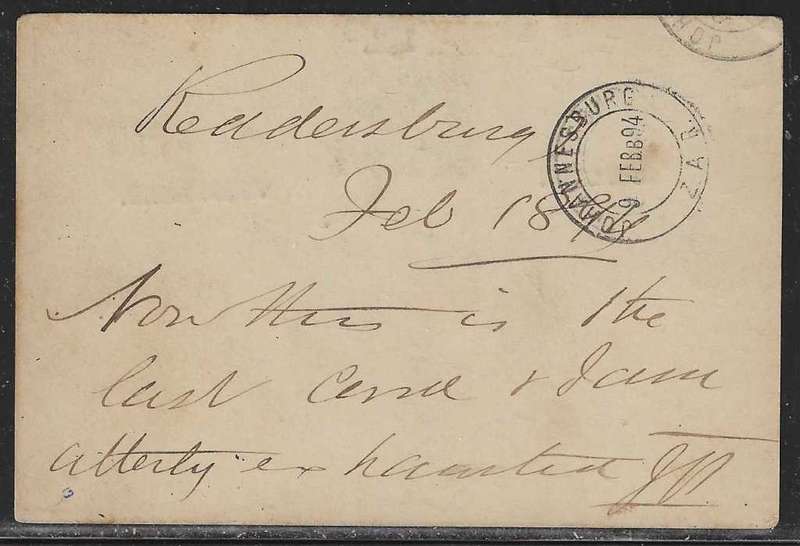 JOH
JOHANNESBURG
Z.A.R.
9 FEBB94
Reddersburg
Feb 18/94
Now this is the
last card & I am
utterly exhausted JP